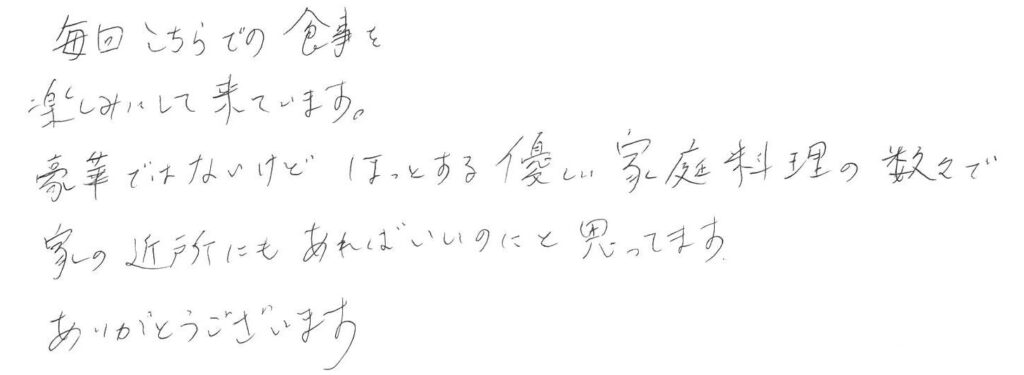 毎回こちらでの食事を
楽しみにして来ています。
豪華ではないけど ほっとする優しい家庭料理の数々で
家の近所にもあればいいのにと思ってます
ありがとうございます